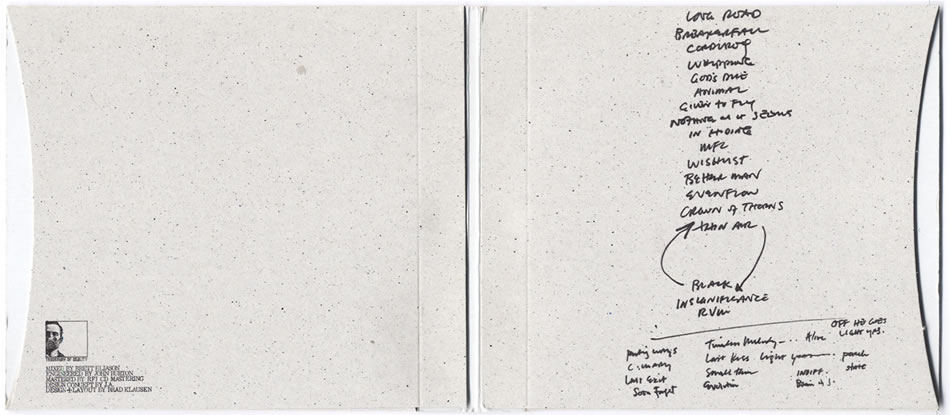 THEATER OF QUALITY
MIXED BY BRETT ELIASON
ENGINEERED BY JOHN BURTON
MASTERED BY RFI CD MASTERING
DESIGN CONCEPT BY J.A.
DESIGN + LAYOUT BY BRAD KLAUSEN
LONG ROAD
BREAKERFALL
CORDUROY
WHIPPING
GOD'S DICE
ANIMAL
GIVEN TO FLY
NOTHING AS IT SEEMS
IN HIDING
MFC
WISHLIST
BETTER MAN
EVENFLOW
CROWN OF THORNS
THIN AIR
BLACK
INSIGNIFICANCE
RVM
parting ways
Last Exit
Soon Forget
Timeless Melody... Alive
Last Kiss Light years...
Small town
Evolution
INDIFF.
OFF HE GOES
LIGHT YRS.
porch
state